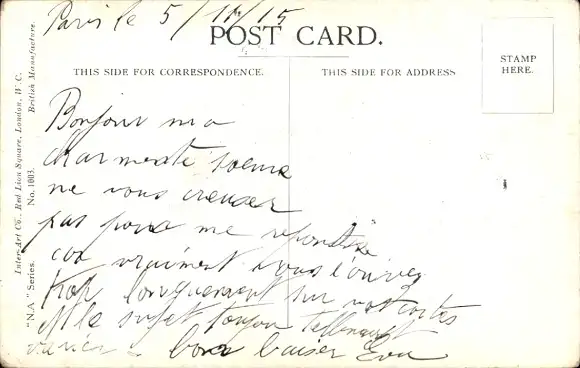 Paris le 5/11/15
POST CARD.
THIS SIDE FOR CORRESPONDENCE.
THIS SIDE FOR ADDRESS
STAMP
HERE.
Inter-Art Co., Red Lion Square, London, W.C.
British Manufacture.
"N.A." Series.
No. 1003.
Bonjour ma
charmente
ne vous creuser
pas pour me repondre
car vraiment vous
longuement sur vos cartes
le sujet
varier bons baiser Eva